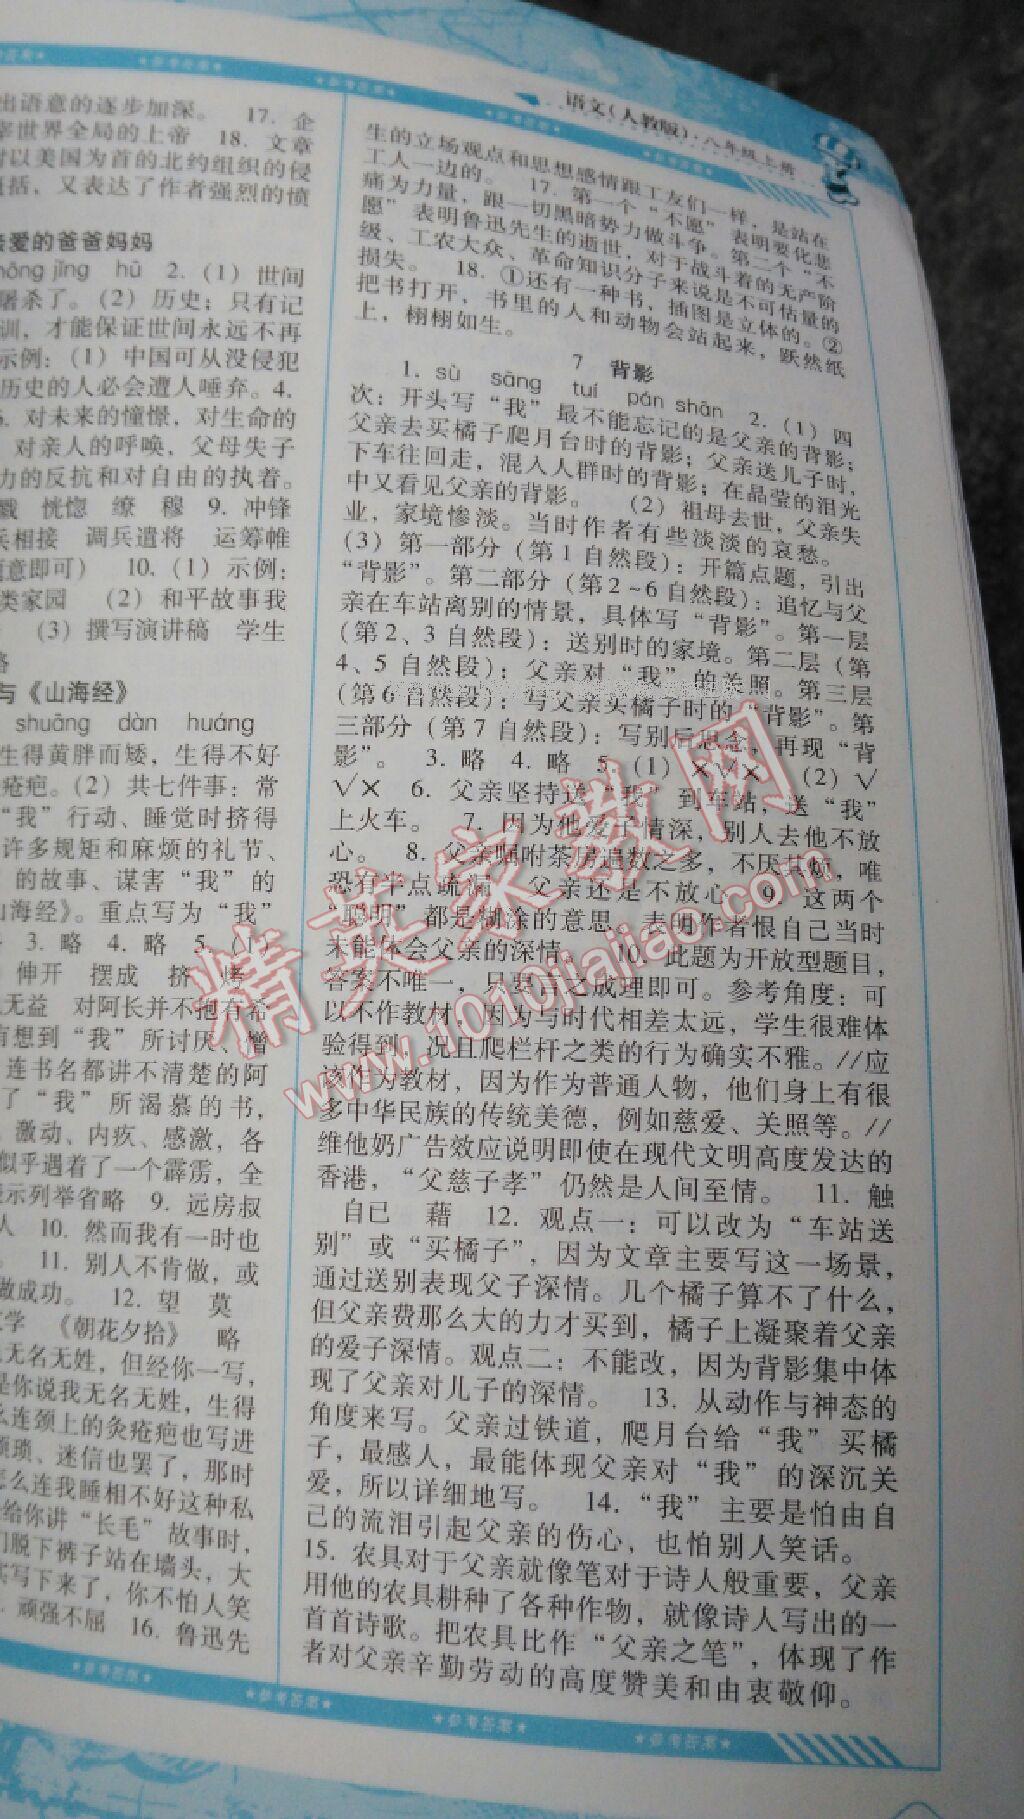 语文(人教版)·八年级上册
出语意的逐步加深。 17. 企
世界全局的上帝 18. 文章
以美国为首的北约组织的侵
括，又表达了作者强烈的愤
爱的爸爸妈妈
hū 2. (1) 世间
屠杀了。(2) 历史；只有记
训，才能保证世间永远不再
示例：(1) 中国可从没侵犯
历史的人必会遭人唾弃。4.
对未来的憧憬，对生命的
对亲人的呼唤，父母失子
力的反抗和对自由的执着。
戮 恍惚 缭 穆 9. 冲锋
兵相接 调兵遣将 运筹帷
意即可) 10. (1) 示例：
类家园 (2) 和平故事我
(3) 撰写演讲稿 学生
略
与《山海经》
shuāng dàn huáng
生得黄胖而矮，生得不好
疮疤。(2) 共七件事：常
“我”行动、睡觉时挤得
许多规矩和麻烦的礼节、
的故事、谋害“我”的
山海经》。重点写为“我”
3. 略 4. 略 5. (1)
伸开 摆成 挤 烤
无益 对阿长并不抱有希
有想到“我”所讨厌、憎
连书名都讲不清楚的阿
了“我”所渴慕的书，
激动、内疚、感激，各
似乎遇着了一个霹雳，全
示列举省略 9. 远房叔
人 10. 然而我有一时也
11. 别人不肯做，或
做成功。 12. 望 莫
文学 《朝花夕拾》 略
无名无姓，但经你一写，
是你说我无名无姓，生得
么连颈上的灸疮疤也写进
烦琐、迷信也罢了，那时
怎么连我睡相不好这种私
给你讲“长毛”故事时，
们脱下裤子站在墙头，大
实写下来了，你不怕人笑
顽强不屈 16. 鲁迅先
生的立场观点和思想感情跟工友们一样，是站在
工人一边的。 17. 第一个“不愿”表明要化悲
痛为力量，跟一切黑暗势力做斗争。第二个“不
愿”表明鲁迅先生的逝世，对于战斗着的无产阶
级、工农大众、革命知识分子来说是不可估量的
损失。 18. ①还有一种书，插图是立体的。②
把书打开，书里的人和动物会站起来，跃然纸
上，栩栩如生。
7 背影
1. sù sāng tuí pán shān 2. (1) 四
次：开头写“我”最不能忘记的是父亲的背影；
父亲去买橘子爬月台时的背影；父亲送儿子时，
下车往回走，混入人群时的背影；在晶莹的泪光
中又看见父亲的背影。 (2) 祖母去世，父亲失
业，家境惨淡。当时作者有些淡淡的哀愁。
(3) 第一部分 (第 1 自然段)：开篇点题，引出
“背影”。第二部分 (第 2~6 自然段)：追忆与父
亲在车站离别的情景，具体写“背影”。第一层
(第 2、3 自然段)：送别时的家境。第二层 (第
4、5 自然段)：父亲对“我”的关照。第三层
(第 6 自然段)：写父亲买橘子时的“背影”。第
三部分 (第 7 自然段)：写别后思念，再现“背
影”。 3. 略 4. 略 5. (1) ×√× (2) √
√× 6. 父亲坚持送“我”到车站，送“我”
上火车。 7. 因为他爱子情深，别人去他不放
心。 8. 父亲嘱咐茶房遍数之多，不厌其烦，唯
恐有半点疏漏，父亲还是不放心。 9. 这两个
“聪明”都是糊涂的意思，表明作者恨自己当时
未能体会父亲的深情。 10. 此题为开放型题目，
答案不唯一，只要言之成理即可。参考角度：可
以不作教材，因为与时代相差太远，学生很难体
验得到，况且爬栏杆之类的行为确实不雅。//应
该作为教材，因为作为普通人物，他们身上有很
多中华民族的传统美德，例如慈爱、关照等。//
维他奶广告效应说明即使在现代文明高度发达的
香港，“父慈子孝”仍然是人间至情。 11. 触
自已 藉 12. 观点一：可以改为“车站送
别”或“买橘子”，因为文章主要写这一场景，
通过送别表现父子深情。几个橘子算不了什么，
但父亲费那么大的力才买到，橘子上凝聚着父亲
的爱子深情。观点二：不能改，因为背影集中体
现了父亲对儿子的深情。 13. 从动作与神态的
角度来写。父亲过铁道，爬月台给“我”买橘
子，最感人，最能体现父亲对“我”的深沉关
爱，所以详细地写。 14. “我”主要是怕由自
己的流泪引起父亲的伤心，也怕别人笑话。
15. 农具对于父亲就像笔对于诗人般重要，父亲
用他的农具耕种了各种作物，就像诗人写出的一
首首诗歌。把农具比作“父亲之笔”，体现了作
者对父亲辛勤劳动的高度赞美和由衷敬仰。
★参考答案★ ★参考答案★ ★参考答案★ ★参考答案★
精英家教网
www.1010jiajiao.com